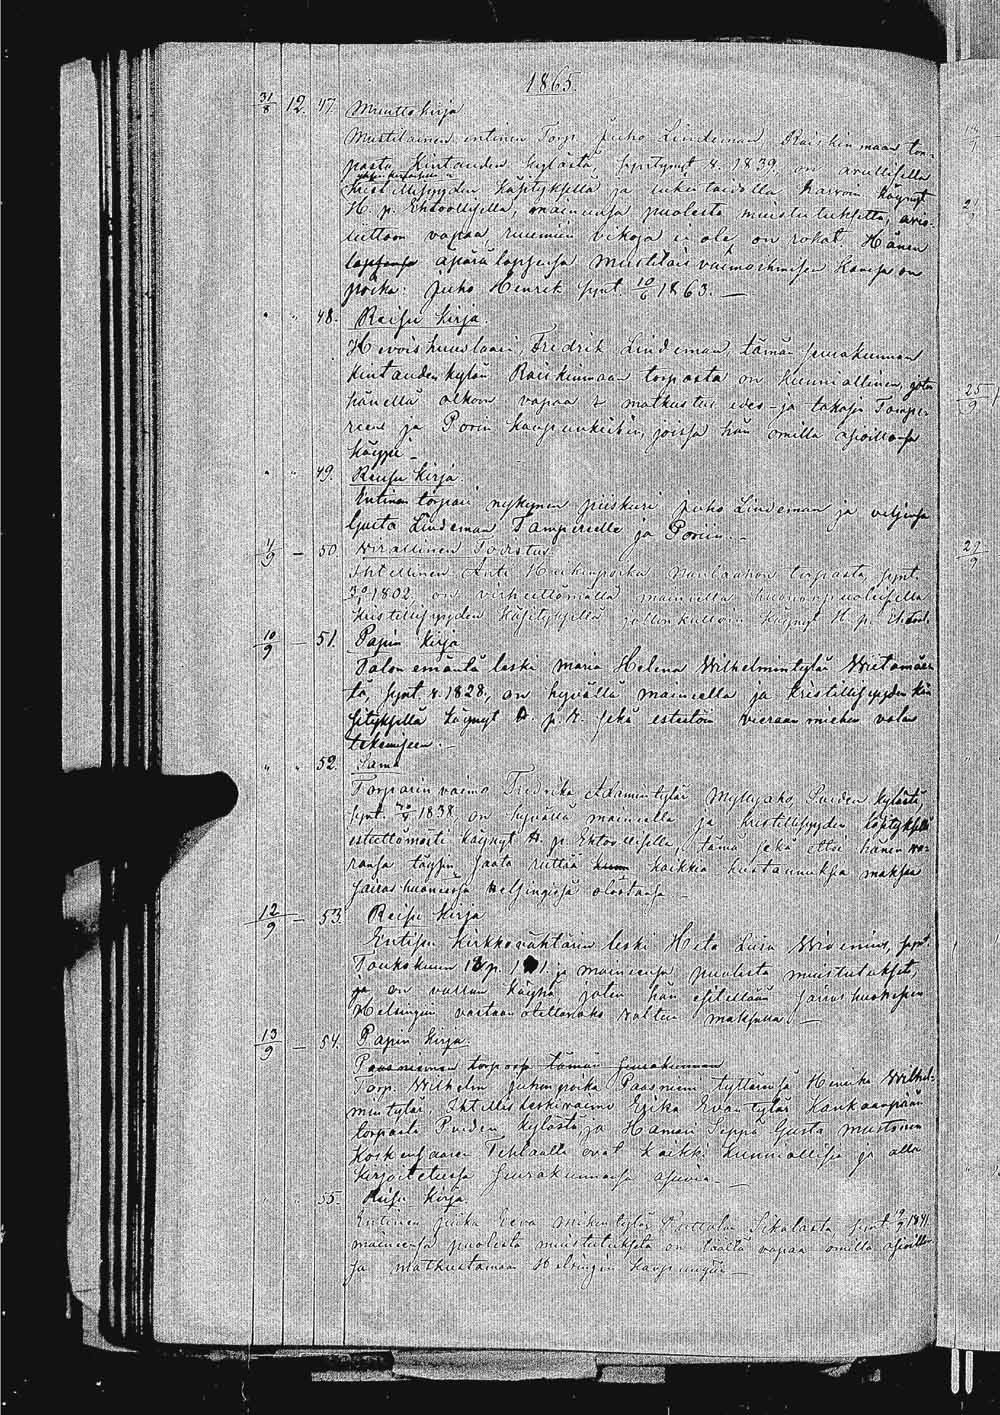 1865.
31/8 12. 47. Muuttokirja
Mustilainen entinen Torp. Juho Lindeman Raiskinmaan tor-
pasta Kintauden kylästä, syntynyt v. 1839, on avullisella
Kristillisyyden käsityksellä ja lukutaidolla harvoin käynyt
H. p. Ehtoollisella, maineensa puolesta muistutuksetta, avio-
liittoon vapaa, ruumiin vikoja ei ole, on rokot. Hänen
lapsensa äpärä lapsensa Mustilais vaimoihmisen kanssa on
poika: Juho Henrik synt. 10/6 1863. —
" " 48. Reisu kirja.
Hevoishuulaari, Fredrik Lindeman tämän seurakunnan
Kintauden kylän Raiskinmaan torpasta on kunniallinen, joten
hänellä olkoon vapaa matkustus edes- ja takasin Tampe-
reen ja Porin kaupunkeihin, joissa hän omilla asioillansa
käypi. —
" " 49. Reisu kirja.
Entinen torpari nykynen piiskuri Juho Lindeman ja veljensä
Gusta Lindeman Tampereelle ja Poriin. —
4/9 — 50. Wirallinen Todistus.
Itsellinen Anti Heikinpoika torpasta, synt.
1802, on virheettömällä maineella
Kristillisyyden käsityksellä jollinkulloin käynyt H. p. Ehtool.
10/9 — 51. Papin kirja
Talon emäntä leski Maria Helena Wilhelmintytär Wiitamäes-
tä, synt. v. 1828, on hyvällä maineella ja kristillisyyden kä-
sityksellä käynyt H. p. E. sekä esteetön vieraan miehen valan
tekemiseen. —
" " 52. Sama
Torparin vaimo Fredrika Adamintytär Myllyaho, Puiden kylästä,
synt. 1838, on hyvällä maineella ja kristillisyyden käsityksellä
esteettömästi käynyt H. p. Ehtoollisella, tämä sekä ettei hänen va-
ransa täysin saata riittää kaikkia kustannuksia maksaa
sairashuoneessa Helsingissä olostansa. —
12/9 — 53. Reisu kirja
Entisen Kirkkovahtärin leski Heta Liisa Widenius, synt.
Toukokuun p. ja maineensa puolesta muistutuksit,
ja on vallan köyhä joten hän esitellään sairashuoneesen
Helsingiin vastaan otettavaksi valtion maksulla. —
13/9 — 54. Papin kirja.
Paasniemen torpasta tämän seurakunnan
Torp. Wilhelm Juhonpoika Paasniemi tyttärensä Henrika Wilhel-
mintytär, Itsellis leskivaimo Erika Evantytär Kankaanpään
torpasta Puiden kylästä ja Hamari Seppä Gusta Mustonen
Koskensaaren Tehtaalla ovat kaikki kunniallisia ja alla
kirjoitetussa seurakunnassa asuvia. —
" " 55. Reisu kirja.
Entinen piika Eeva Mikintytär Puttolan Sikalasta synt. 1841.
maineensa puolesta muistutuksita on täältä vapaa omilla asioillan-
sa matkustamaan Helsingin kaupunkiin —
25/9
27/9